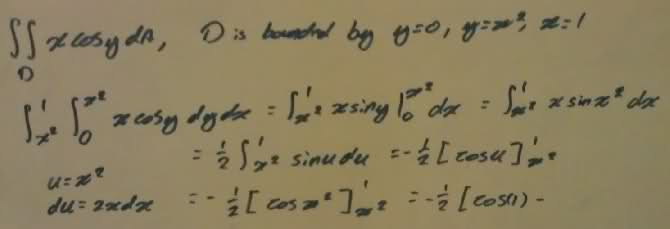 ∬_D x cos y dA, D is bounded by y=0, y=x², x=1
∫_{x²}^{1} ∫_{0}^{x²} x cos y dy dx = ∫_{x²}^{1} x sin y |_{0}^{x²} dx = ∫_{x²}^{1} x sin x² dx
= ½ ∫_{x²}^{1} sin u du = -½ [cos u]_{x²}^{1}
u = x²
du = 2x dx = -½ [cos x²]_{x²}^{1} = -½ [cos(1) -